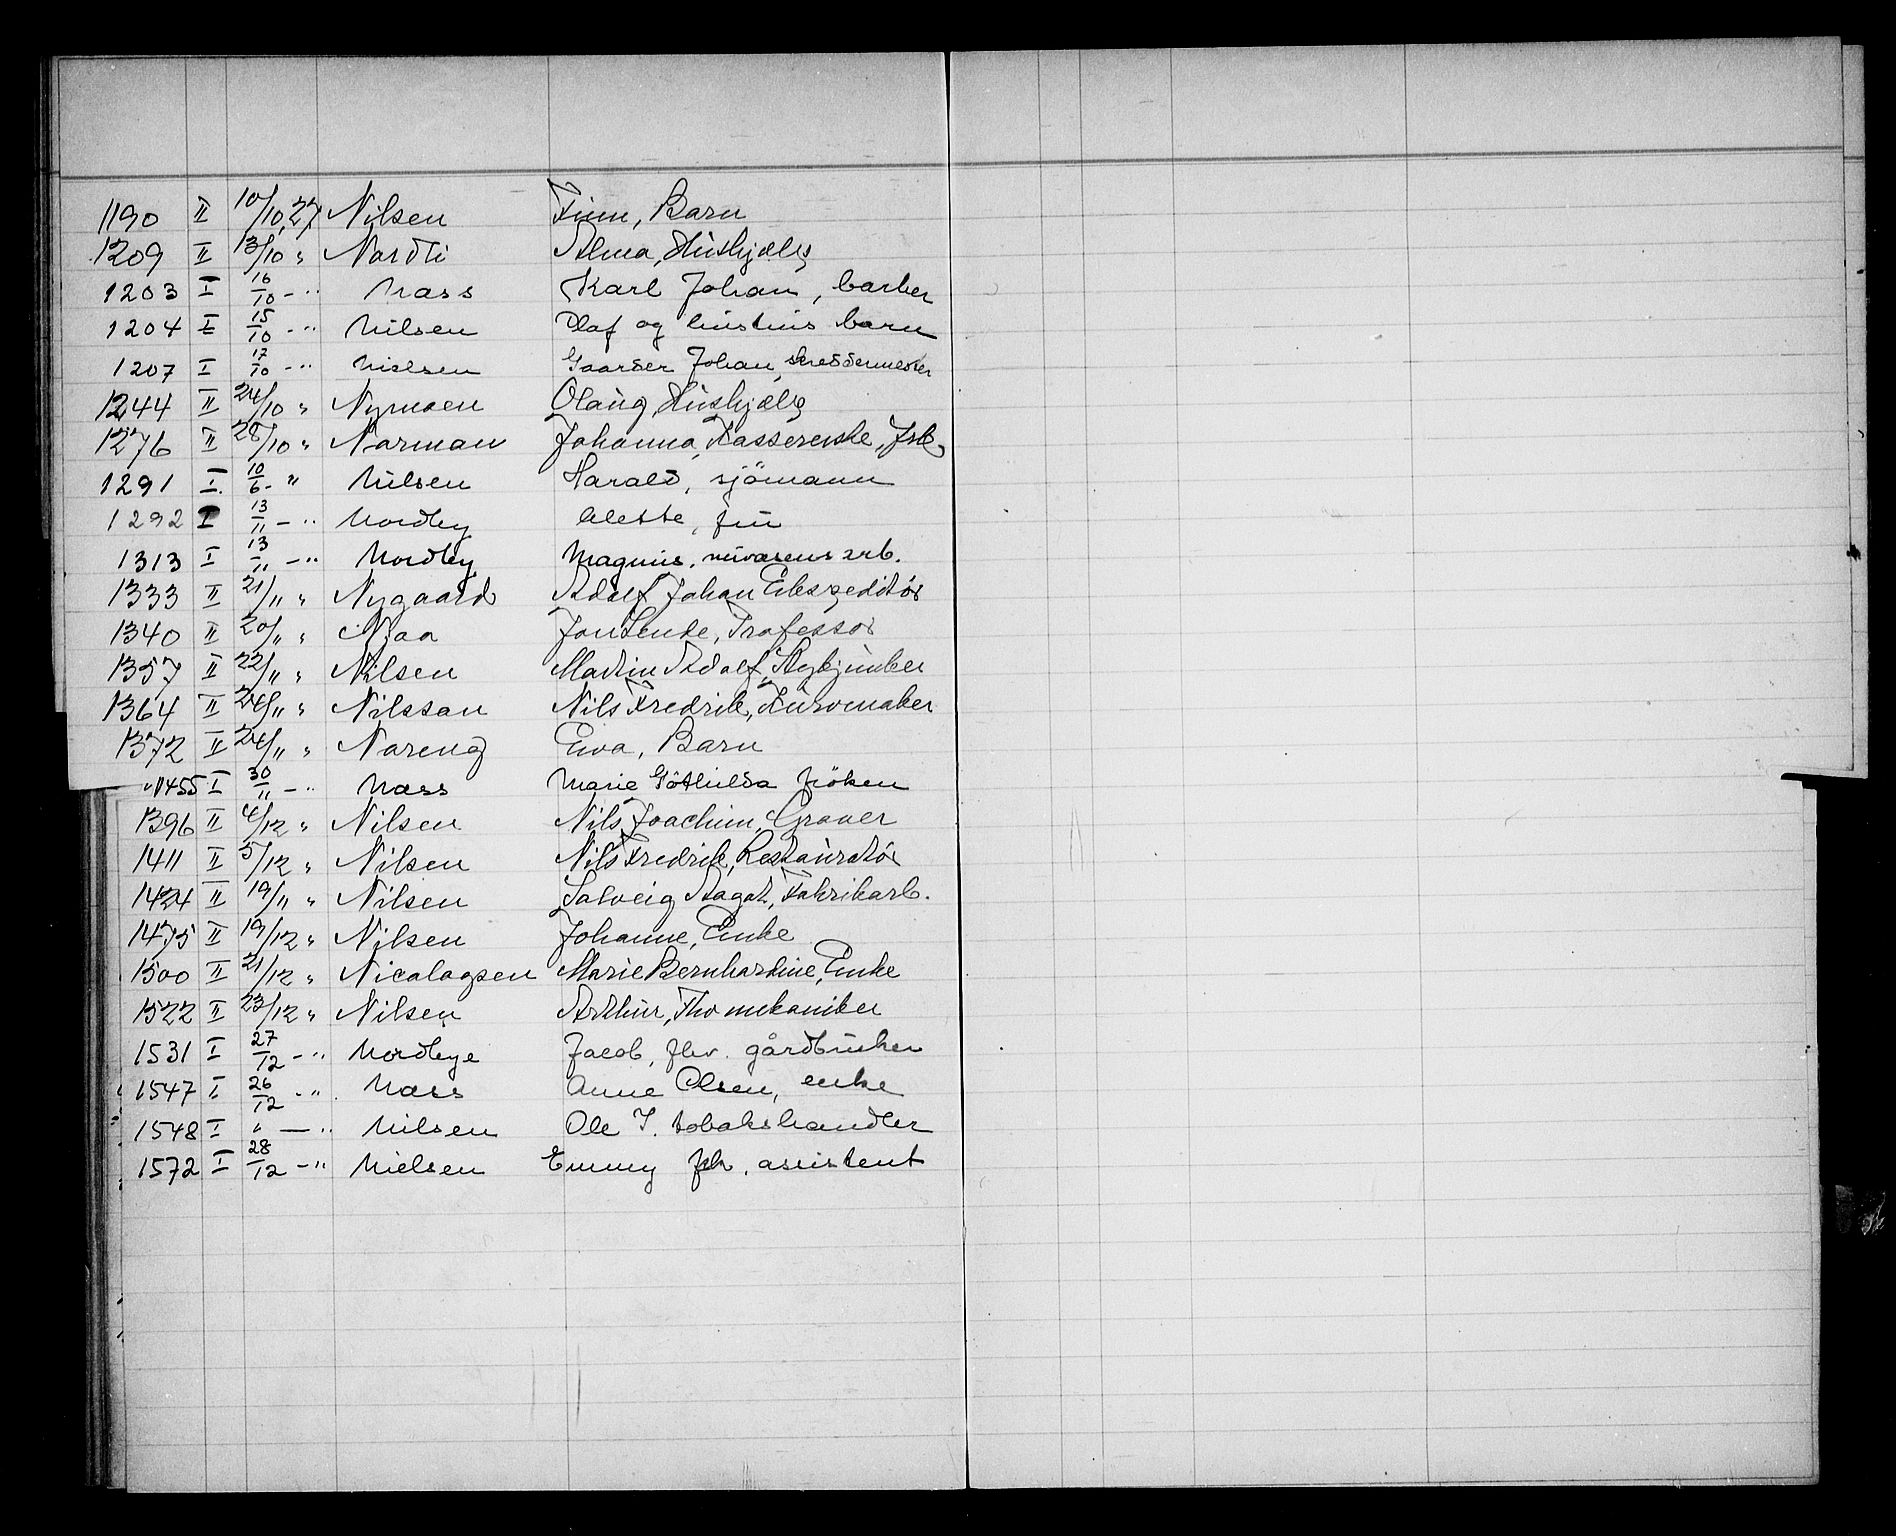 1190 II 10/10.27 Nilsen Finn, Barn
1209 II 13/10 " Nordli Alma, Hushjælp
1203 I 16/10 - " Næss Karl Johan, barber
1204 I 15/10 - " Nilsen Olaf og hustrus barn
1207 I 17/10 - " Nielsen Gaarder Johan, skreddermester
1244 II 24/10 " Nymoen Olaug, Hushjælp
1276 II 28/10 " Norman Johanna, Kassererske, Frk.
1291 I. 10/6 - " Nilsen Harald, sjömann
1292 I 13/11 - " Nordby fru
1313 I 13/11 - " Nordby Magnus, murarb.
1333 II 21/11 " Nygaard Adolf Johan Ekspeditør
1340 II 20/11 " Njaa Jon Lende, Professor
1357 II 22/11 " Nilsen Martin Adolf, Stykjunker
1364 II 24/11 " Nilsson Nils Fredrik, Kurvmaker
1372 II 24/11 " Noreng Eva, Barn
1455 I 30/11 - " Næss Marie Göthilda fröken
1396 II 4/12 " Nilsen Nils Joachim, Graver
1411 II 5/12 " Nilsen Nils Fredrik, Restauratør
1424 II 19/11 " Nilsen Solveig Aagot, Fabrikarb.
1475 II 19/12 " Nilsen Johanne, Enke
1500 II 21/12 " Nicolaysen Marie Bernhardine, Enke
1522 II 23/12 " Nilsen Arthur, Fhv mekaniker
1531 I 27/12 - " Nordbye Jacob, fhv. gårdbruker
1547 I 26/12 - " Næss Anne Olsen, enke
1548 I " — " Nilsen Ole I. tobakshandler
1572 I 28/12 - " Nielsen Emmy frk. assistent